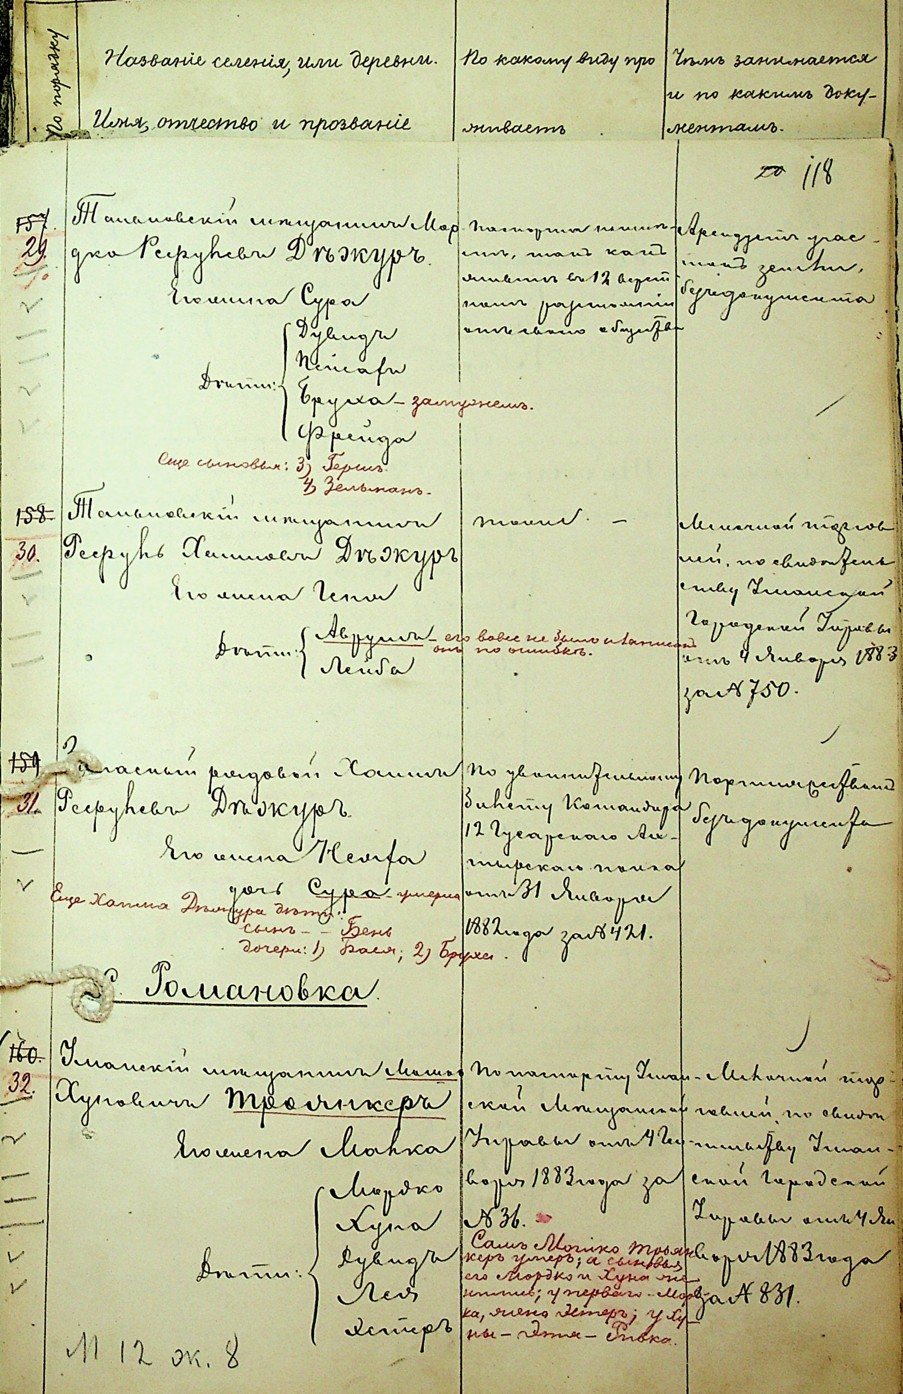 По порядку
Названіе селенія, или деревни.
Имя, отчество и прозваніе
По какому виду про
живаетъ
Чѣмъ занимается
и по какимъ доку-
ментамъ.
20 118
157.
29.
Тальновскій мѣщанинъ Мор
дко Рефулевъ Дѣжуръ.
Его жена Сура
Дѣти:
Дувидъ
Бруха - замужемъ.
Фрейда
Еще сыновья: 3) Гершъ.
4) Зельманъ.
такъ какъ
живетъ въ 12 верст
номъ разстояніи
отъ своего общества
Арендуетъ учас-
токъ земли,
безъ документа
158.
30.
Тальновскій мѣщанинъ
Хаимовъ Дѣжуръ
Его жена
Дѣти:
Аврумъ - его вовсе не было и записанъ
онъ по ошибкѣ.
Лейба
тоже. -
Мелочной торгов
лей, по свидѣтель
ству Уманской
Городской Управы
отъ 4 Января 1883
за № 750.
159
31.
Запасный рядовой Хаимъ
Дѣжуръ.
Его жена
дочь Сура - умерла
Еще Хаима Дѣжура дѣти:
сынъ - - Бень
дочери: 1) Бася; 2) Бруха.
По увольнительному
билету Командира
12 Гусарскаго Ах-
тырскаго полка
отъ 31 Января
1882 года за № 421.
безъ документа
С. Романовка.
160.
32.
Уманскій мѣщанинъ Мошко
Хуновичъ Троянкеръ
Его жена Манка
Дѣти:
Мордко
Хуна
Дувидъ
Лея
Эстеръ
По паспорту Уман-
ской Мѣщанской
Управы отъ 4 Ян-
варя 1883 года за
№ 36.
Самъ Мошко Троян
керъ умеръ; а сыновья
его Мордко и Хуна же-
наты; у перваго - Морд-
ка, жена Эстеръ; у Ху-
ны - Ривка.
Мелочной тор-
говлей, по свидѣ
тельству Уман-
ской Городской
Управы отъ 4 Ян
варя 1883 года
за № 831.
М 12 ж. 8